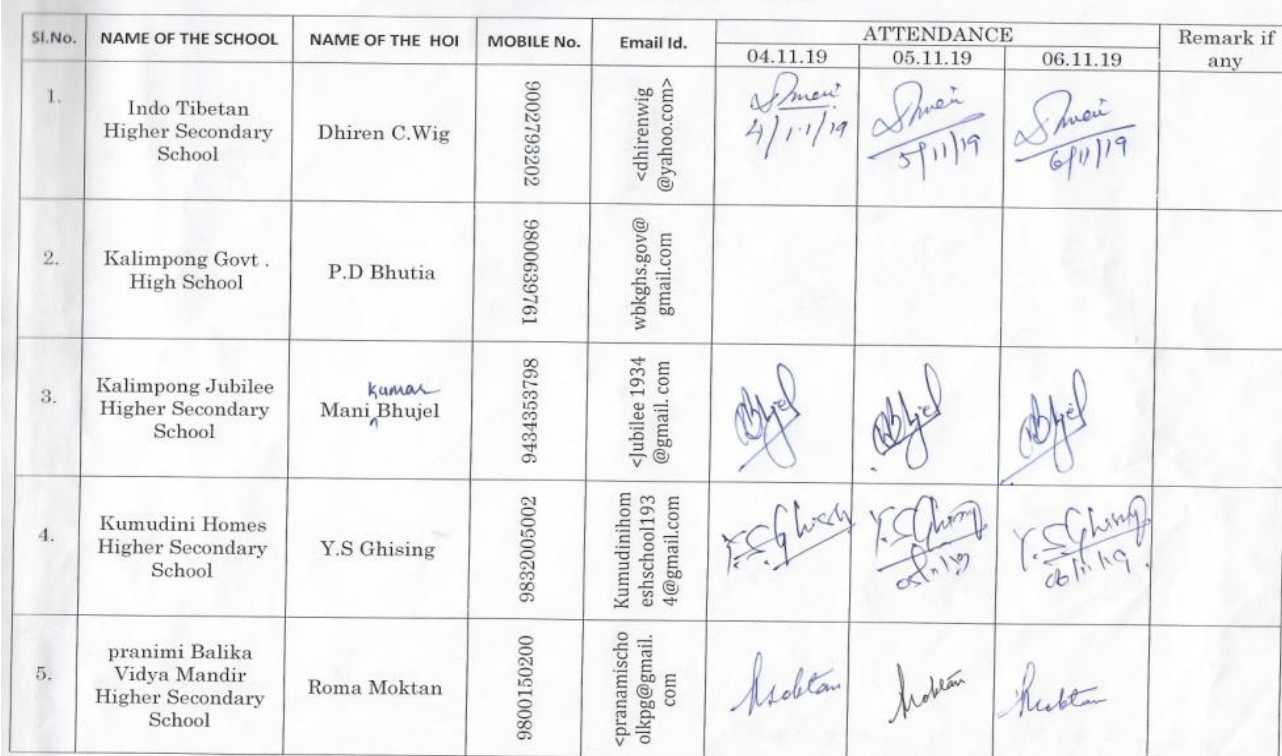 Sl.No. NAME OF THE SCHOOL NAME OF THE HOI MOBILE No. Email Id. ATTENDANCE Remark if any
04.11.19 05.11.19 06.11.19
1. Indo Tibetan Higher Secondary School Dhiren C.Wig 9002793202 <dhirenwig @yahoo.com>
4/11/19 5/11/19 6/11/19
2. Kalimpong Govt . High School P.D Bhutia 9800639761 wbkghs.gov@ gmail.com
3. Kalimpong Jubilee Higher Secondary School Mani kumar Bhujel 9434353798 <Jubilee 1934 @gmail. com
Bhjel Bhjel Bhjel
4. Kumudini Homes Higher Secondary School Y.S Ghising 9832005002 Kumudinihom eshschool193 4@gmail.com
Y.S Ghising Y.S Ghising Y.S Ghising
05/11/19 06/11/19
5. pranimi Balika Vidya Mandir Higher Secondary School Roma Moktan 9800150200 <pranamischo olkpg@gmail. com